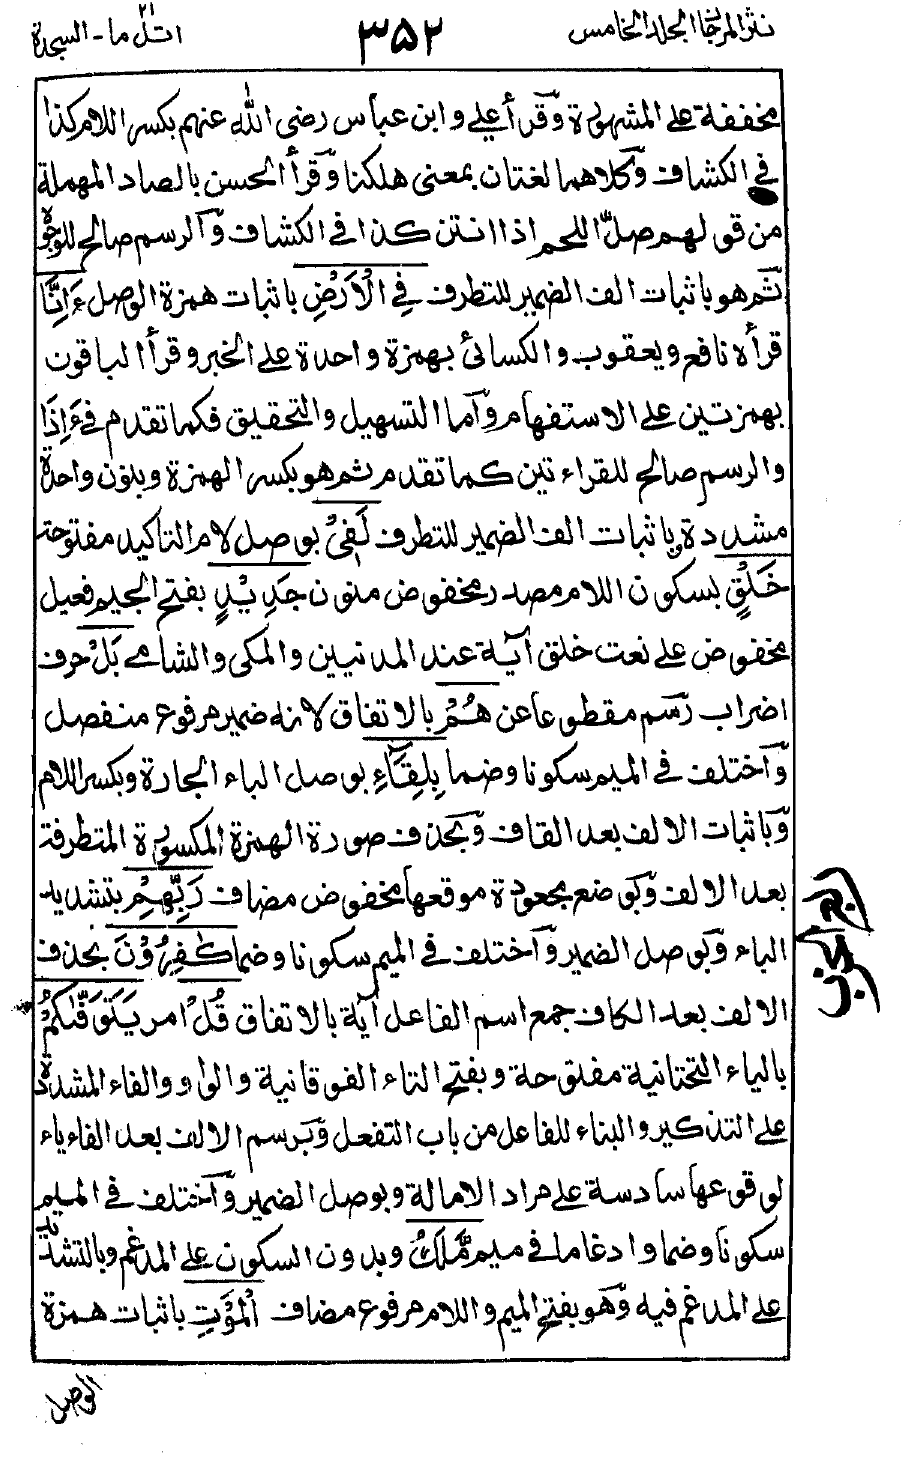 نثر المرجان المجلد الخامس ٣٥٢ اتل ما - السجدة ٢١
مخففة على المشهورة وقرأ علي وابن عباس رضى الله عنهم بكسر اللام كذا
في الكشاف وكلاهما لغتان بمعنى هلكنا وقرأ الحسن بالصاد المهملة
من قولهم صلّ اللحم اذا انتن كذا في الكشاف والرسم صالح للوجوه
ثم هو باثبات الف الضمير للتطرف فِي الْاَرْضِ باثبات همزة الوصل ءَاِنَّا
قرأه نافع ويعقوب والكسائى بهمزة واحدة على الخبر وقرأ الباقون
بهمزتين على الاستفهام وآما التسهيل والتحقيق فكما تقدم في ءَاِذَا
والرسم صالح للقراءتين كما تقدم ثم هو بكسر الهمزة وبنون واحدة
مشددة باثبات الف الضمير للتطرف لَفِيْ بوصل لام التاكيد مفتوحة
خَلْقٍ بسكون اللام مصدر مخفوض منون جَدِيْدٍ بفتح الجيم فعيل
مخفوض على نعت خلق آية عند المدنيين والمكى والشامے بَلْ حرف
اضراب رسم مقطوعا عن هُمْ بالاتفاق لانه ضمير مرفوع منفصل
وآختلف في الميم سكونا وضما بِلِقَآءِ بوصل الباء الجارة وبكسر اللام
وباثبات الالف بعد القاف وبحذف صورة الهمزة المكسورة المتطرفة
بعد الالف وبوضع مجعودة موقعها مخفوض مضاف رَبِّهِمْ بتشديد
الباء وبوصل الضمير وآختلف في الميم سكونا وضما كٰفِرُوْنَ بحذف
الالف بعد الكاف جمع اسم الفاعل آية بالاتفاق قُلْ امر يَتَوَفّٰىكُمْ
بالياء التحتانية مفتوحة وبفتح التاء الفوقانية والواو والفاء المشددة
على التذكير والبناء للفاعل من باب التفعل وبرسم الالف بعد الفاء ياء
لوقوعها سادسة على مراد الامالة وبوصل الضمير وآختلف في الميم
سكونا وضما وادغاما في ميم مَّلَكُ وبدون السكون على المدغم وبالتشديد
على المدغم فيه وهو بفتح الميم واللام مرفوع مضاف الْمَوْتِ باثبات همزة
الوصل
ربع الحزب